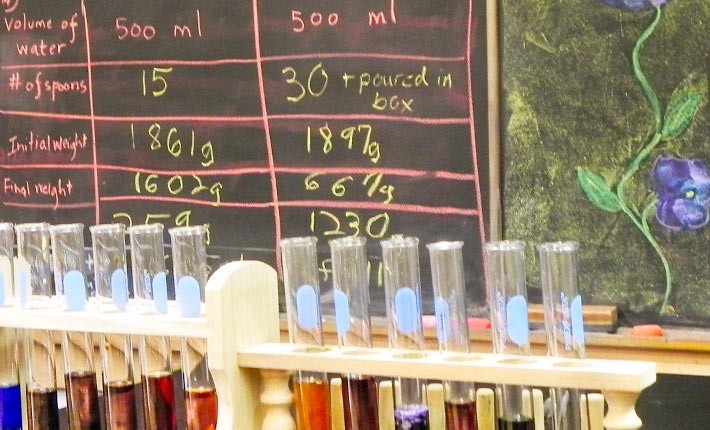 Volume of water 500 ml 500 ml
# of spoons 15 30 + poured in box
Initial weight 1861g 1897g
Final weight 1602g 667g
259g 1230